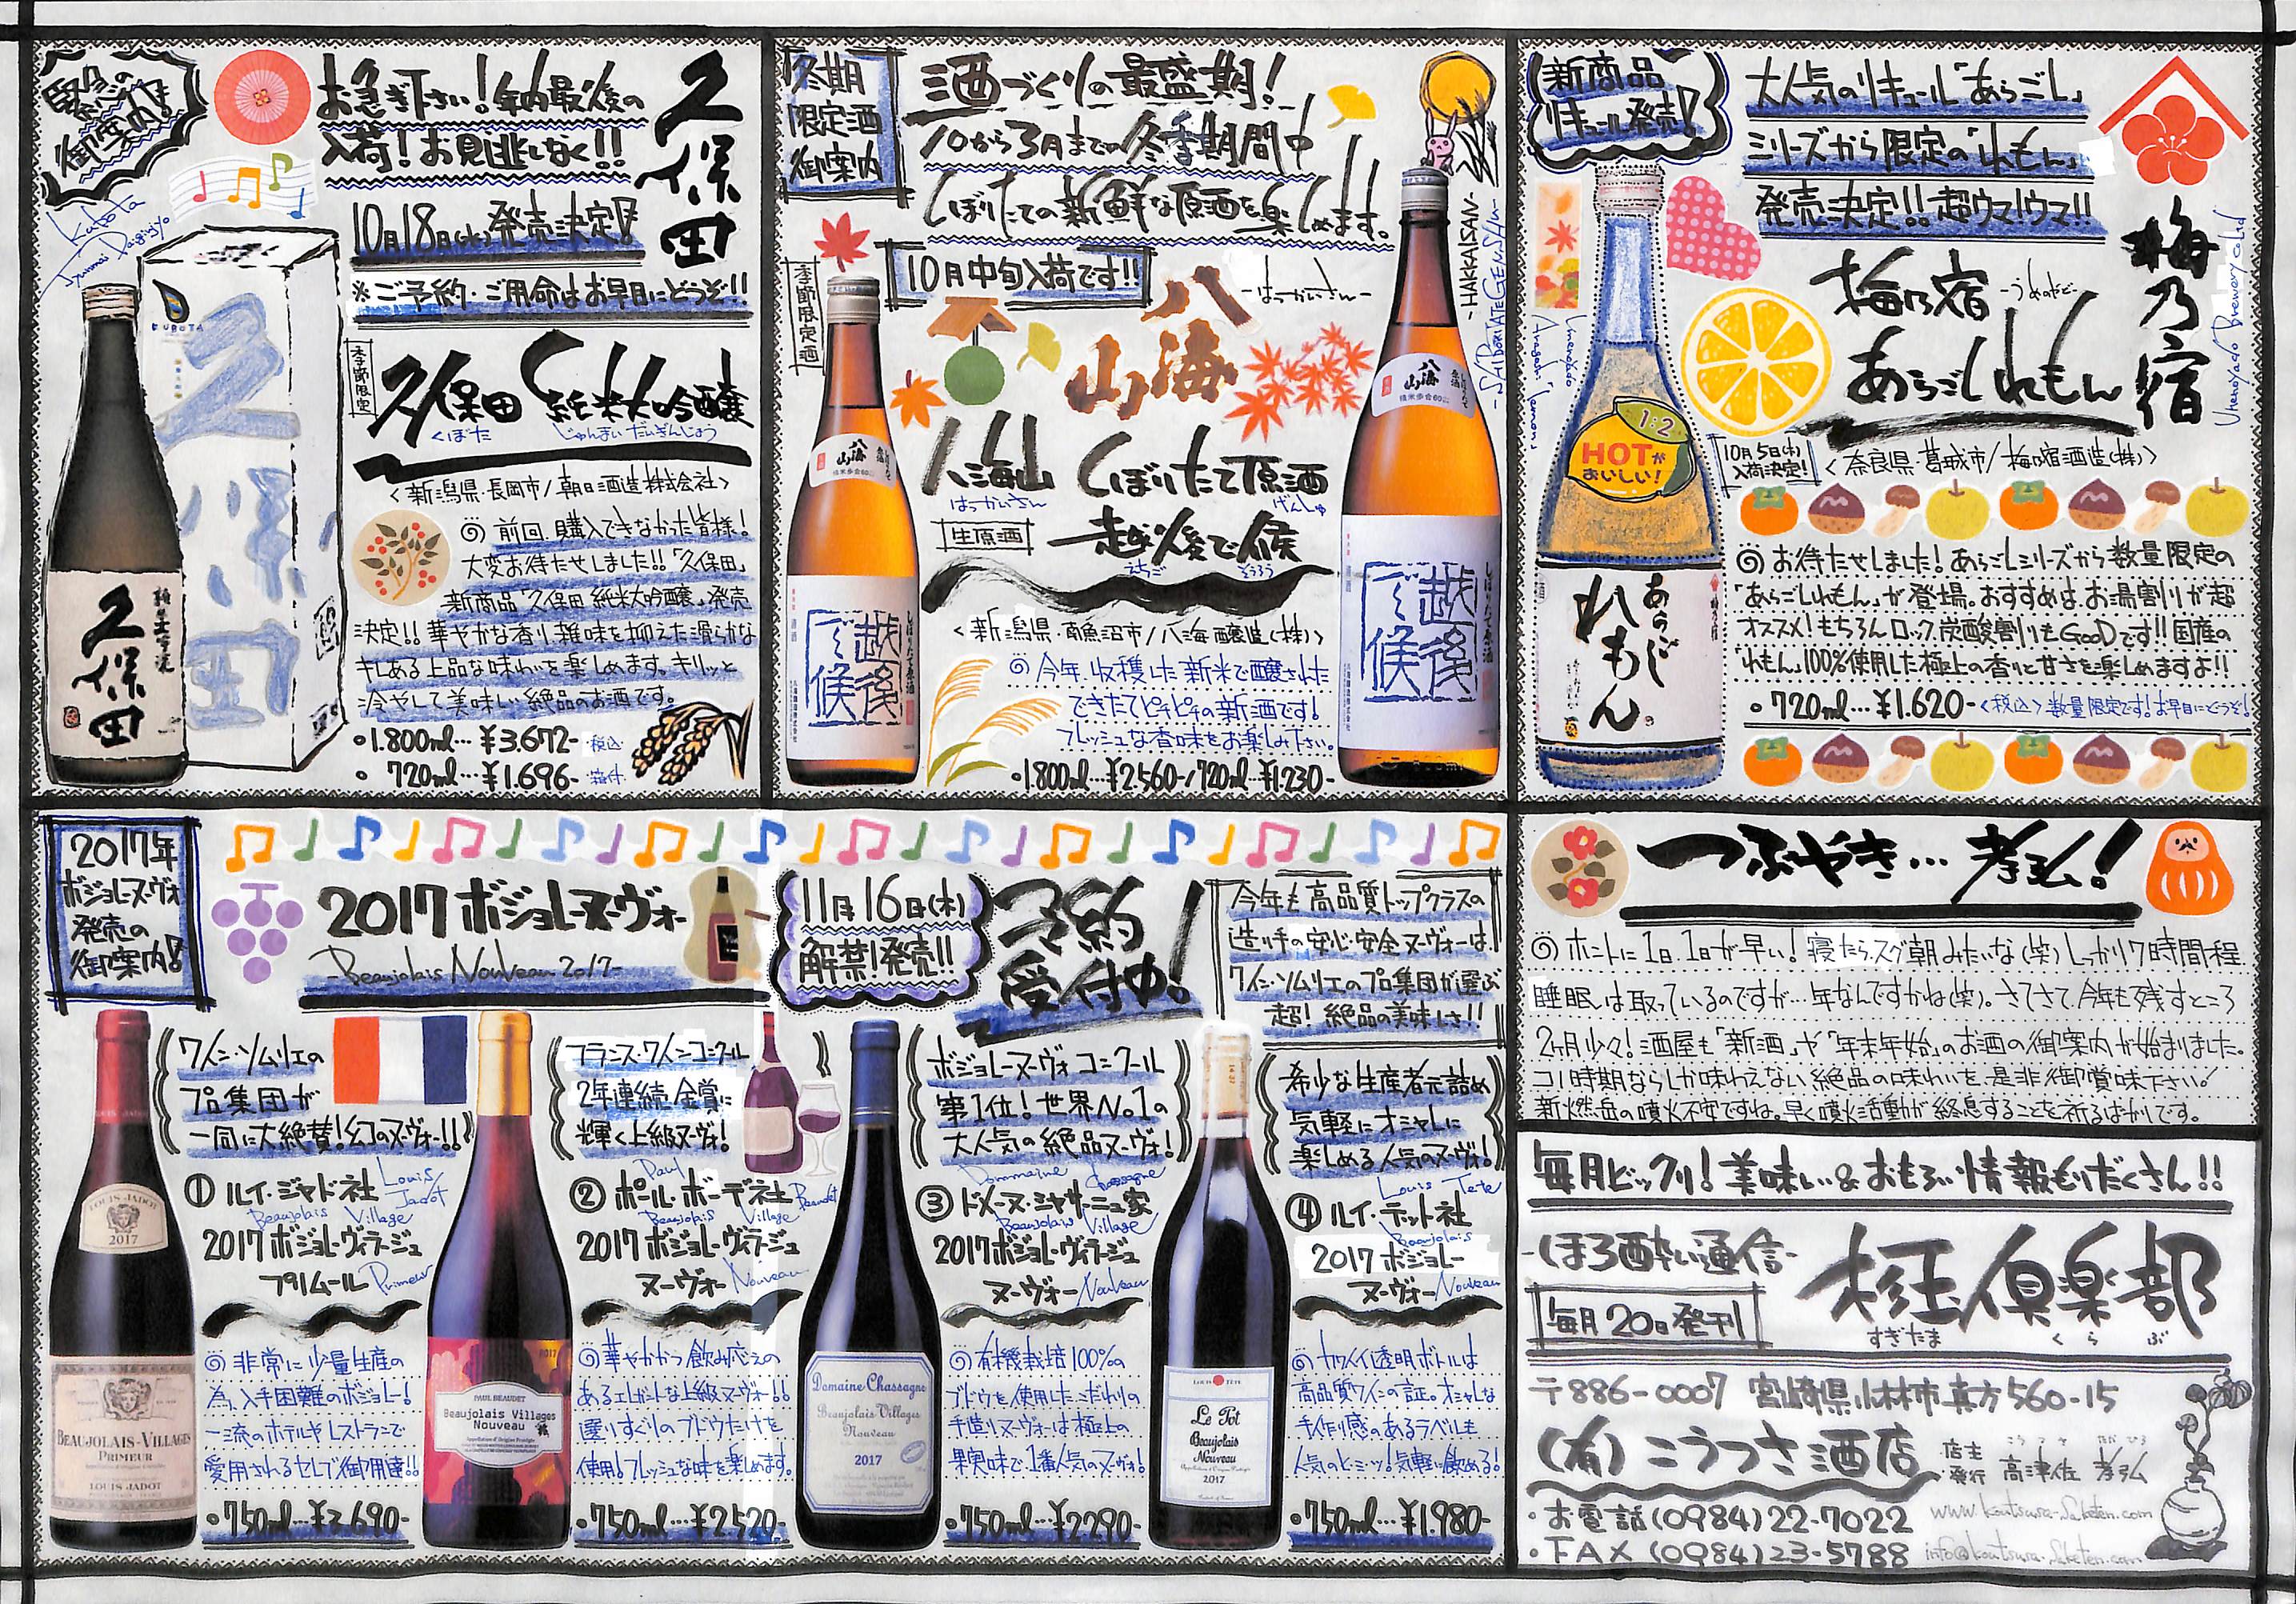 緊急の
御案内!!
お急ぎ下さい!年内最後の
入荷!お見逃しなく!!
久保田
10月18日(水)発売決定!!
※ご予約・ご用命はお早目にどうぞ!!
Kubota
Junmai Daiginjyo
KUBOTA
久保田
季節限定
久保田 純米大吟醸
くぼた じゅんまいだいぎんじょう
<新潟県・長岡市/朝日酒造株式会社>
◎前回、購入できなかった皆様!
大変お待たせしました!!「久保田」
新商品「久保田 純米大吟醸」発売
決定!!華やかな香り、雑味を抑えた滑らかな
キレある上品な味わいを楽しめます。キリッと
冷やして美味しい絶品のお酒です。
・1.800ml…¥3.672-税込
・720ml…¥1.696-箱付
久保田
冬期
限定酒
御案内
酒づくりの最盛期!
10から3月までの冬季期間中
しぼりたての新鮮な原酒を楽しめます。
10月中旬入荷です!!
季節限定酒
八海山
-はっかいさん-
-HAKKAISAN-
-SHIBORITATE GENSHU-
八海山 しぼりたて原酒
はっかいさん げんしゅ
生原酒
越後で候
えちご そうろう
<新潟県・南魚沼市/八海醸造(株)>
◎今年、収穫した新米で醸された
できたてピチピチの新酒です!
フレッシュな香味をお楽しみ下さい。
・1.800ml…¥2.560-/720ml…¥1.230-
八海山
しぼりたて原酒
越後で候
八海山
しぼりたて原酒
越後で候
新商品
リキュール発売!
大人気のリキュール「あらごし」
シリーズから限定の「れもん」
発売決定!!超ウマ!ウマ!!
梅乃宿
Umenoyado Brewery co Ltd
梅乃宿-うめのやど-
あらごしれもん
10月5日(木)
入荷決定!
<奈良県・葛城市/梅乃宿酒造(株)>
1:2
HOTが
おいしい!
あらごし
れもん
◎お待たせしました!あらごしシリーズから数量限定の
「あらごしれもん」が登場。おすすめは、お湯割りが超
オススメ!もちろんロック、炭酸割りもGooDです!!国産の
「れもん」100%使用した極上の香りと甘さを楽しめますよ!!
・720ml…¥1.620-<税込>数量限定です!お早目にどうぞ!
2017年
ボジョレーヌーヴォ
発売の
御案内!
2017ボジョレーヌーヴォー
-Beaujolais Nouveau 2017-
11月16日(木)
解禁!発売!!
予約
受付中!
今年も高品質トップクラスの
造り手の安心・安全ヌーヴォーは、
ワイン・ソムリエのプロ集団が選ぶ
超!絶品の美味しさ!!
ワイン・ソムリエの
プロ集団が
一同に大絶賛!幻のヌーヴォー!!
①ルイ・ジャド社
Louis Jadot
Beaujolais Village
2017ボジョレーヴィラージュ
プリムール Primeur
◎非常に少量生産の
為、入手困難のボジョレー!
一流のホテルやレストランで
愛用されるセレブ御用達!!
・750ml…¥3.690-
LOUIS JADOT
2017
BEAUJOLAIS-VILLAGES
PRIMEUR
LOUIS JADOT
フランス・ワインコンクール
2年連続金賞に
輝く上級ヌーヴォ!
②ポール・ボーデネ社
Paul Beaudet
Beaujolais Village
2017ボジョレーヴィラージュ
ヌーヴォー Nouveau
◎華やかかつ飲み応えの
あるエレガントな上級ヌーヴォー!!
選りすぐりのブドウだけを
使用!フレッシュな味を楽しめます。
・750ml…¥2.520-
2017
PAUL BEAUDET
Beaujolais Villages
Nouveau
ボジョレーヌーヴォコンクール
第1位!世界No.1の
大人気の絶品ヌーヴォ!
Dommaine Chassagne
③ドメーヌ・シャサーニュ家
Beaujolais Village
2017ボジョレーヴィラージュ
ヌーヴォー Nouveau
◎有機栽培100%の
ブドウを使用したこだわりの
手造りヌーヴォーは極上の
果実味で1番人気のヌーヴォ!
・750ml…¥2290-
Domaine Chassagne
Beaujolais Villages
Nouveau
2017
希少な生産者元詰め
気軽にオシャレに
楽しめる人気のヌーヴォ!
Louis Tete
④ルイ・テット社
Beaujolais
2017ボジョレー
ヌーヴォー Nouveau
◎カワイイ透明ボトルは
高品質ワインの証。オシャレな
手作り感のあるラベルも
人気のヒミツ!気軽に飲める!
・750ml…¥1.980-
Le Tot
Beaujolais
Nouveau
2017
つぶやき…孝弘!
◎ホントに1日、1日が早い!寝たらスグ朝みたいな(笑)しっかり7時間程、
睡眠は取っているのですが…年なんですかね(笑)。さてさて、今年も残すところ
2ヶ月少々!酒屋も「新酒」や「年末年始」のお酒の御案内が始まりました。
コノ時期ならしか味わえない絶品の味わいを是非御賞味下さい!
新燃岳の噴火不安ですね。早く噴火活動が終息することを祈るばかりです。
毎月ビックリ!美味しい&おもろい情報もりだくさん!!
-ほろ酔い通信-
杉玉倶楽部
すぎたま くらぶ
毎月20日発刊
〒886-0007 宮崎県小林市真方560-15
(有)こうつさ酒店
店主
・発行
こうつさ たかひろ
高津佐 孝弘
・お電話(0984)22-7022
www.koutsusa-saketen.com
・FAX(0984)23-5788
info@koutsusa-saketen.com